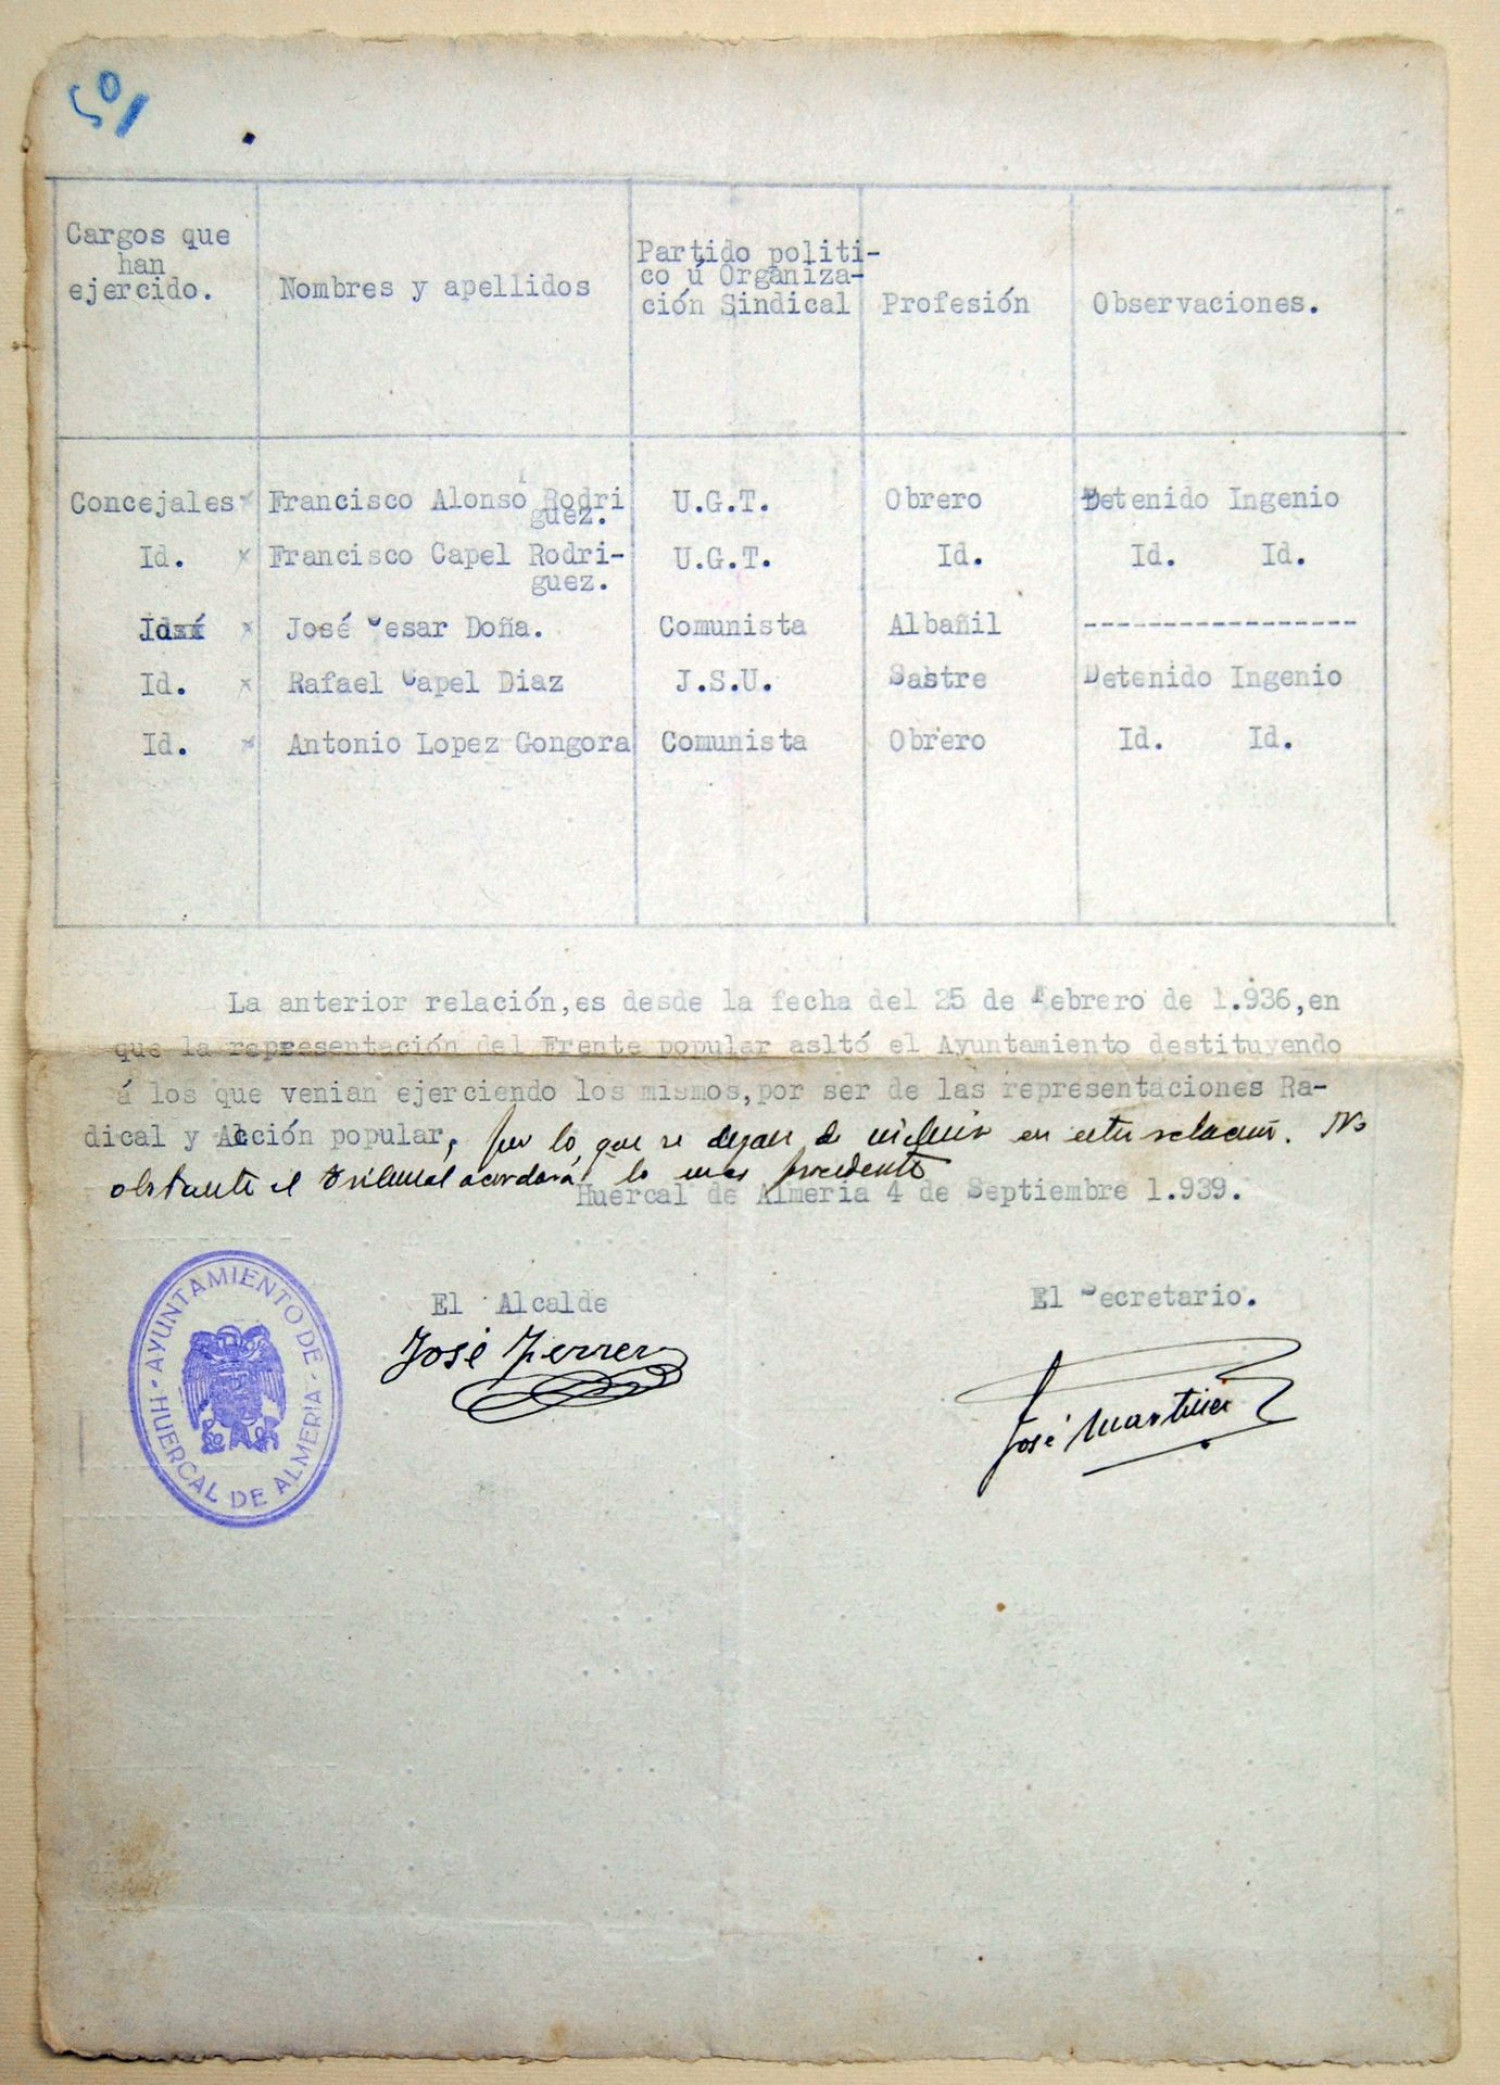 501
Cargos que
han
ejercido.
Nombres y apellidos
Partido politi-
co ú Organiza-
ción Sindical
Profesión
Observaciones.
Concejales × Francisco Alonso Rodri U.G.T. Obrero Detenido Ingenio
guez.
Id. × Francisco Capel Rodri- U.G.T. Id. Id. Id.
guez.
× José Cesar Doña. Comunista Albañil -----------------
Id. × Rafael Capel Diaz J.S.U. Sastre Detenido Ingenio
Id. × Antonio Lopez Gongora Comunista Obrero Id. Id.
La anterior relación,es desde la fecha del 25 de Febrero de 1.936,en
que la representación del Frente popular asltó el Ayuntamiento destituyendo
á los que venian ejerciendo los mismos,por ser de las representaciones Ra-
dical y Acción popular, por lo que se dejan de incluir en esta relación. No
obstante el Tribunal acordará lo mas procedente
Huercal de Almeria 4 de Septiembre 1.939.
AYUNTAMIENTO DE
HUERCAL DE ALMERIA
El Alcalde
El Secretario.
José Ferrer
José Martinez